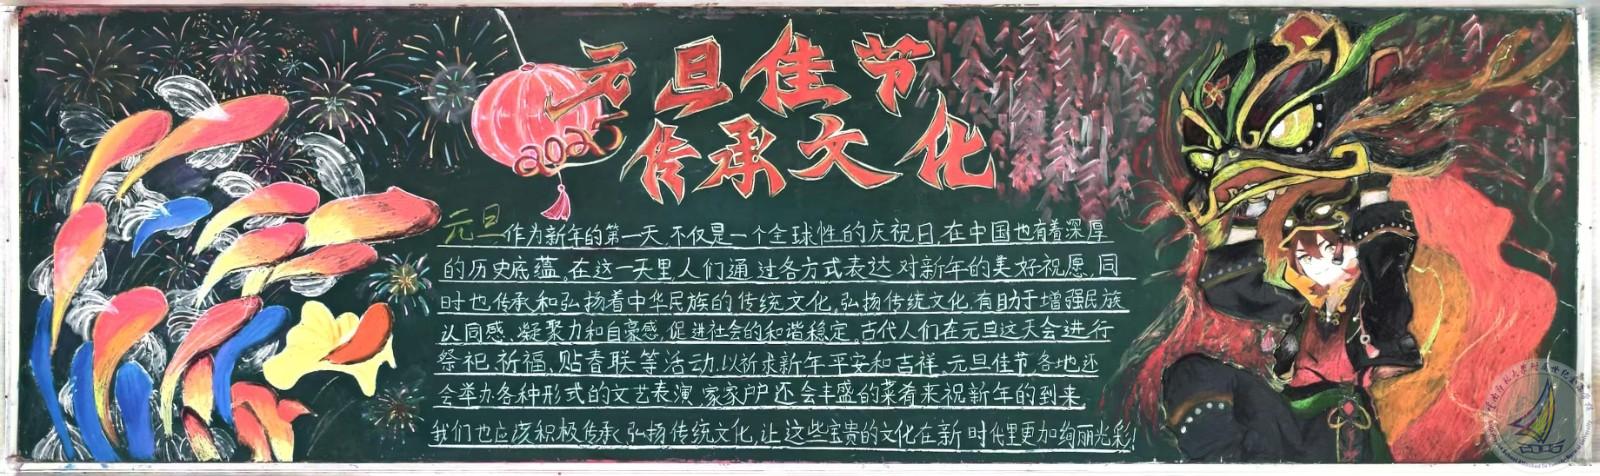 元旦佳节
2025
传承文化
元旦作为新年的第一天,不仅是一个全球性的庆祝日,在中国也有着深厚
的历史底蕴。在这一天里人们通过各方式表达对新年的美好祝愿,同
时也传承和弘扬着中华民族的传统文化。弘扬传统文化,有助于增强民族
认同感、凝聚力和自豪感,促进社会的和谐稳定。古代人们在元旦这天会进行
祭祀、祈福、贴春联等活动,以祈求新年平安和吉祥。元旦佳节,各地还
会举办各种形式的文艺表演,家家户户还会丰盛的菜肴来祝新年的到来
我们也应该积极传承、弘扬传统文化,让这些宝贵的文化在新时代里更加绚丽光彩!